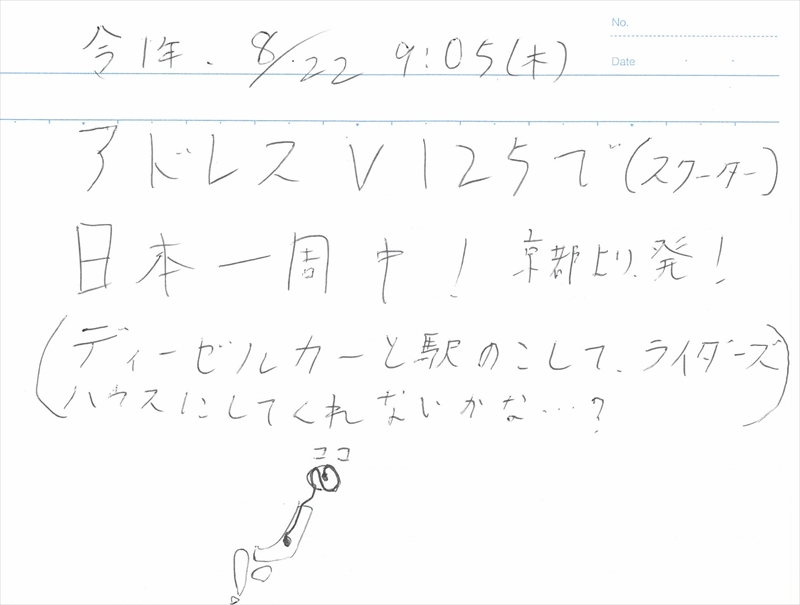 No.
Date
今年、8/22 9:05(木)
アドレスV125で(スクーター)
日本一周中！ 京都より、発！
(ディーゼルカーと駅のこして、ライダーズ
ハウスにしてくれないかな…？)
ココ